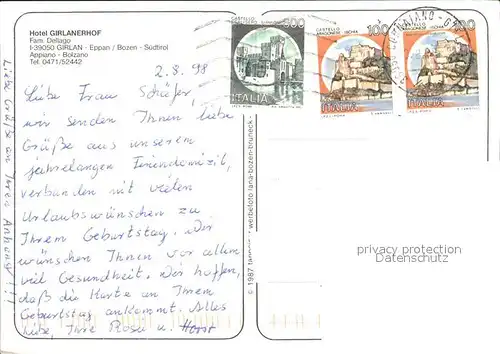 Hotel GIRLANERHOF
Fam. Dellago
I-39050 GIRLAN - Eppan / Bozen - Südtirol
Appiano - Bolzano
Tel. 0471/52442
2.8.98
Liebe Frau Schäfer,
wir senden Ihnen liebe
Grüße aus unserem
jahrelangen Feriendomizil,
verbunden mit vielen
Urlaubswünschen zu
Ihrem Geburtstag. Wir
wünschen Ihnen vor allem
viel Gesundheit. Wir hoffen,
daß die Karte an Ihrem
Geburtstag ankommt. Alles
Liebe, Ihre Rosa u. Horst
Liebe Grüße an Ihren Anhang!!!
© 1987 tappeiner werbefoto lana-bozen-bruneck
CASTELLO
ITALIA
CASTELLO
ARAGONESE ISCHIA
100
ITALIA
CASTELLO
ARAGONESE ISCHIA
ITALIA
privacy protection
Datenschutz